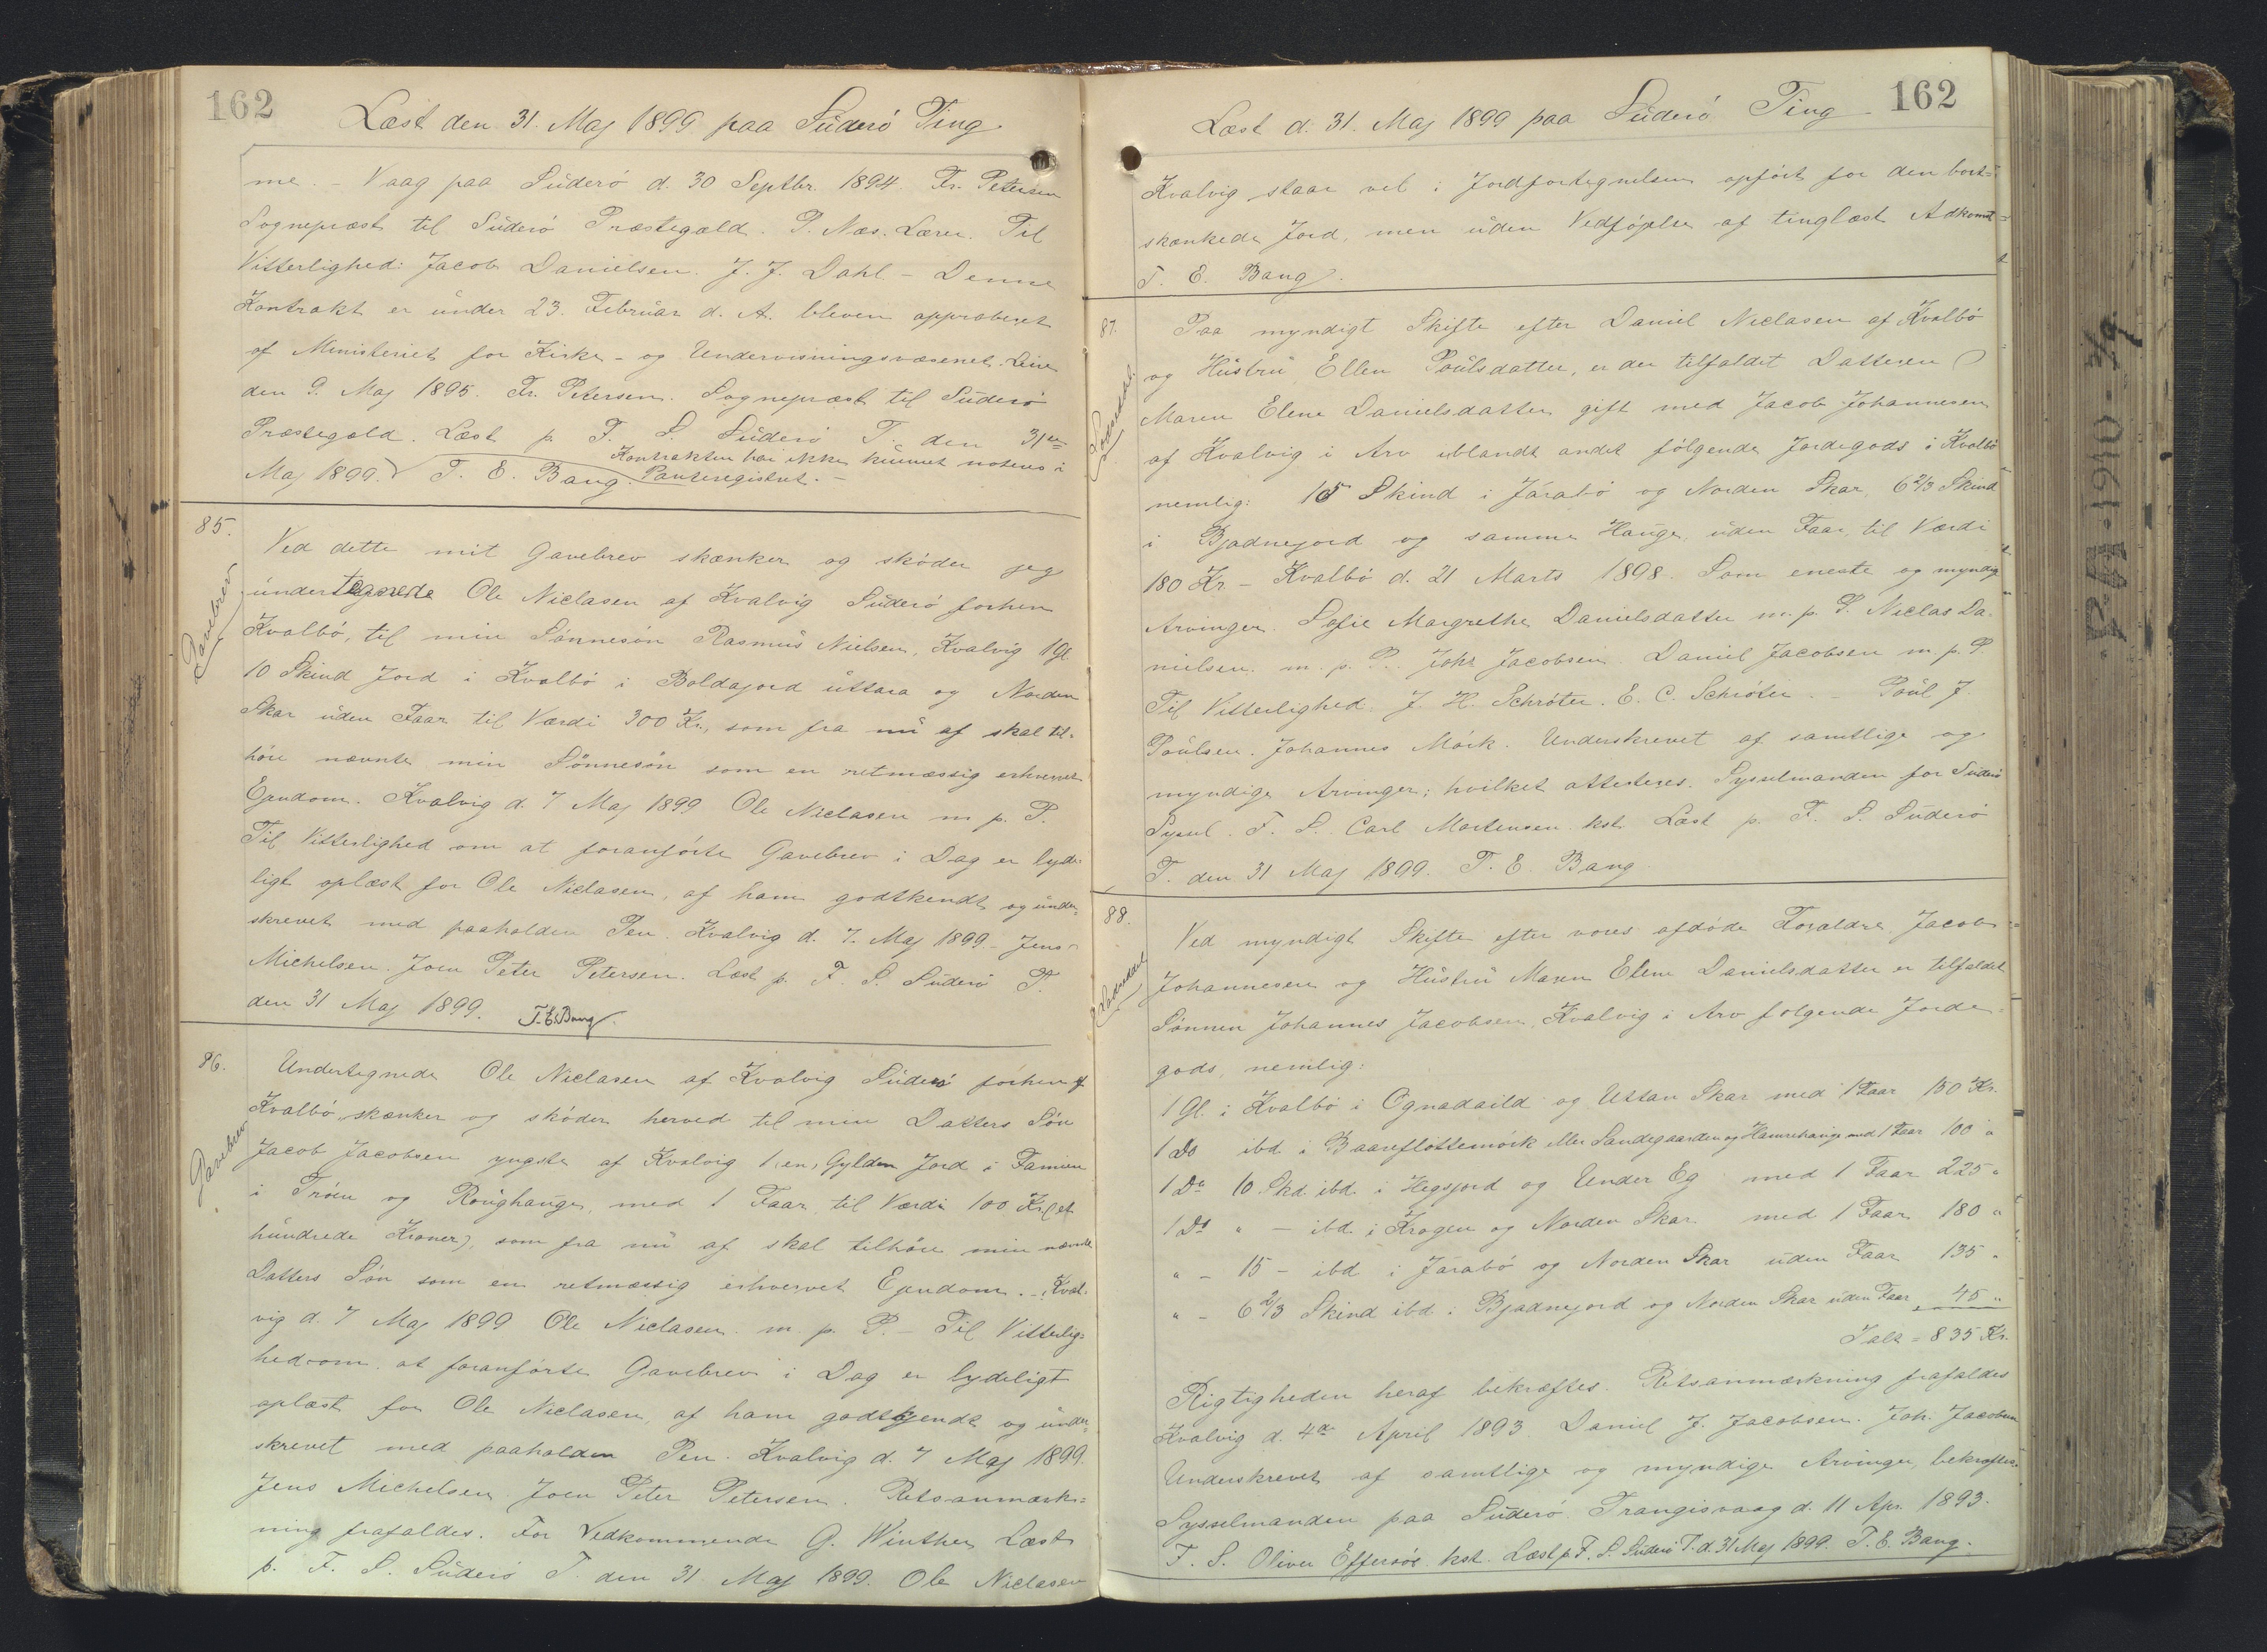 162
Læst den 31. Maj 1899 paa Süderö Ting
me. - Vaag paa Süderö d. 30 Septbr. 1894. Fr. Petersen
Sognepræst til Süderö Præstegæld. P. Næs. Lærer. Til
Vitterlighed: Jacob Danielsen. J. J. Dahl - Denne
Kontrakt er ünder 23. Febrüar d. A. bleven approberet
af Ministeriet for Kirke- og Undervisningsvæsenet.
den 9. Maj 1895. Fr. Petersen. Sognepræst til Süderö
Præstegæld. Læst p. F. S. Süderö T. den 31te
Kontrakten har ikke künnet noteres i
Maj 1899. T. E. Bang. Panteregistret. -
85.
Gavebrev
Ved dette mit Gavebrev skænker og sköder jeg
ündertegnede Ole Niclasen af Kvalvig Süderö forhen
Kvalbö, til min Sönnesön Rasmüs Nielsen, Kvalvig 1 Gl.
10 Skind Jord i Kvalbö i Boldajord üttara og Norden
Skar üden Faar til Værdi 300 Kr., som fra nü af skal til-
höre nævnte min Sönnesön som en retmæssig erhvervet
Ejendom. Kvalvig d. 7 Maj 1899. Ole Niclasen m. p. P.
Til Vitterlighed om at foranförte Gavebrev i Dag er lyde-
ligt oplæst for Ole Niclasen, af ham godtkendt og ünder-
skrevet med paaholden Pen. Kvalvig d. 7. Maj 1899. - Jens
Michelsen. Joen Peter Petersen. Læst p. F. S. Süderö T.
den 31 Maj 1899. T. E. Bang.
86.
Gavebrev
Undertegnede Ole Niclasen af Kvalvig Süderö forhen af
Kvalbö skænker og sköder herved til min Datters Sön
Jacob Jacobsen yngste af Kvalvig 1, en, Gylden Jord i Famien
i Tröen og Roüghaüge, med 1 Faar, til Værdi 100 Kr. (et
hündrede Kroner), som fra nü af skal tilhöre min nævnte
Datters Sön som en retmæssig erhvervet Ejendom. - Kval-
vig d. 7 Maj 1899 Ole Niclasen. m. p. P. - Til Vitterlig-
hed om at foranförte Gavebrev i Dag er lydeligt
oplæst for Ole Niclasen, af ham godtkjendt og ünder-
skrevet med paaholden Pen. Kvalvig d. 7 Maj 1899.
Jens Michelsen. Joen Peter Petersen. Retsanmærk-
ning frafaldes. For Vedkommende G. Winther Læst
p. F. S. Süderö T. den 31 Maj 1899. Ole Niclasen
162
Læst d. 31. Maj 1899 paa Süderö Ting
Kvalvig staar vel i Jordfortegnelsen opfört for den bort-
skænkede Jord, men üden Vedföjelse af tinglæst Adkomst
T. E. Bang.
87.
Paa myndigt Skifte efter Daniel Niclasen af Kvalbö
og Hüstrü Ellen Poülsdatter, er der tilfaldet Datteren
Maren Elene Danielsdatter gift med Jacob Johannesen
af Kvalvig i Arv iblandt andet fölgende Jordegods i Kvalbö
nemlig: 15 Skind i Járabö og Norden Skar, 6 2/3 Skind
i Bjadnejord og samme Hauge, üden Faar, til Værdi
180 Kr. - Kvalbö d. 21 Marts 1898. Som eneste og myndig
Arvinger. Sofie Margrethe Danielsdatter m. p. P. Niclas Da-
nielsen. m. p. P. Johs Jacobsen. Daniel Jacobsen m. p. P.
Til Vitterlighed. J. H. Schröter. E. C. Schröter. - Poül J.
Poülsen. Johannes Mörk. Underskrevet af samtlige og
myndige Arvinger; hvilket attesteres. Sysselmanden for Süderö
Syssel. F. S. Carl Mortensen kst. Læst p. F. S. Süderö
T. den 31 Maj 1899. T. E. Bang
88.
Ved myndigt Skifte efter vores afdöde Forældre Jacob
Johannesen og Hüstrü Maren Elene Danielsdatter er tilfaldet
Sönnen Johannes Jacobsen, Kvalvig i Arv fölgende Jorde-
gods, nemlig:
1 Gl. i Kvalbö i Ognadaild og Uttan Skar med 1 Faar 150 Kr.
1 Do ibd. i Baareflottemörk eller Sandegaarden og Hamrehaüge med 1 Faar 100 "
1 Do 10 Skd. ibd. i Hegsjord og Under Eg med 1 Faar 225 "
1 Do " - ibd. i Krogen og Norden Skar med 1 Faar 180 "
" - 15 - ibd i Járabö og Norden Skar üden Faar 135 "
" - 6 2/3 Skind ibd. i Bjadnejord og Norden Skar üden Faar 45 "
Ialt = 835 Kr.
Rigtigheden heraf bekræftes. Retsanmærkning frafaldes
Kvalvig d. 4de April 1893. Daniel J. Jacobsen. Joh. Jacobsen
Underskrevet af samtlige og myndige Arvinger, bekræftes.
Sysselmanden paa Süderö. Trangisvaag d. 11 Apr. 1893.
F. S. Oliver Effersöe kst. Læst p. F. S. Süderö T. d. 31 Maj 1899. T. E. Bang.